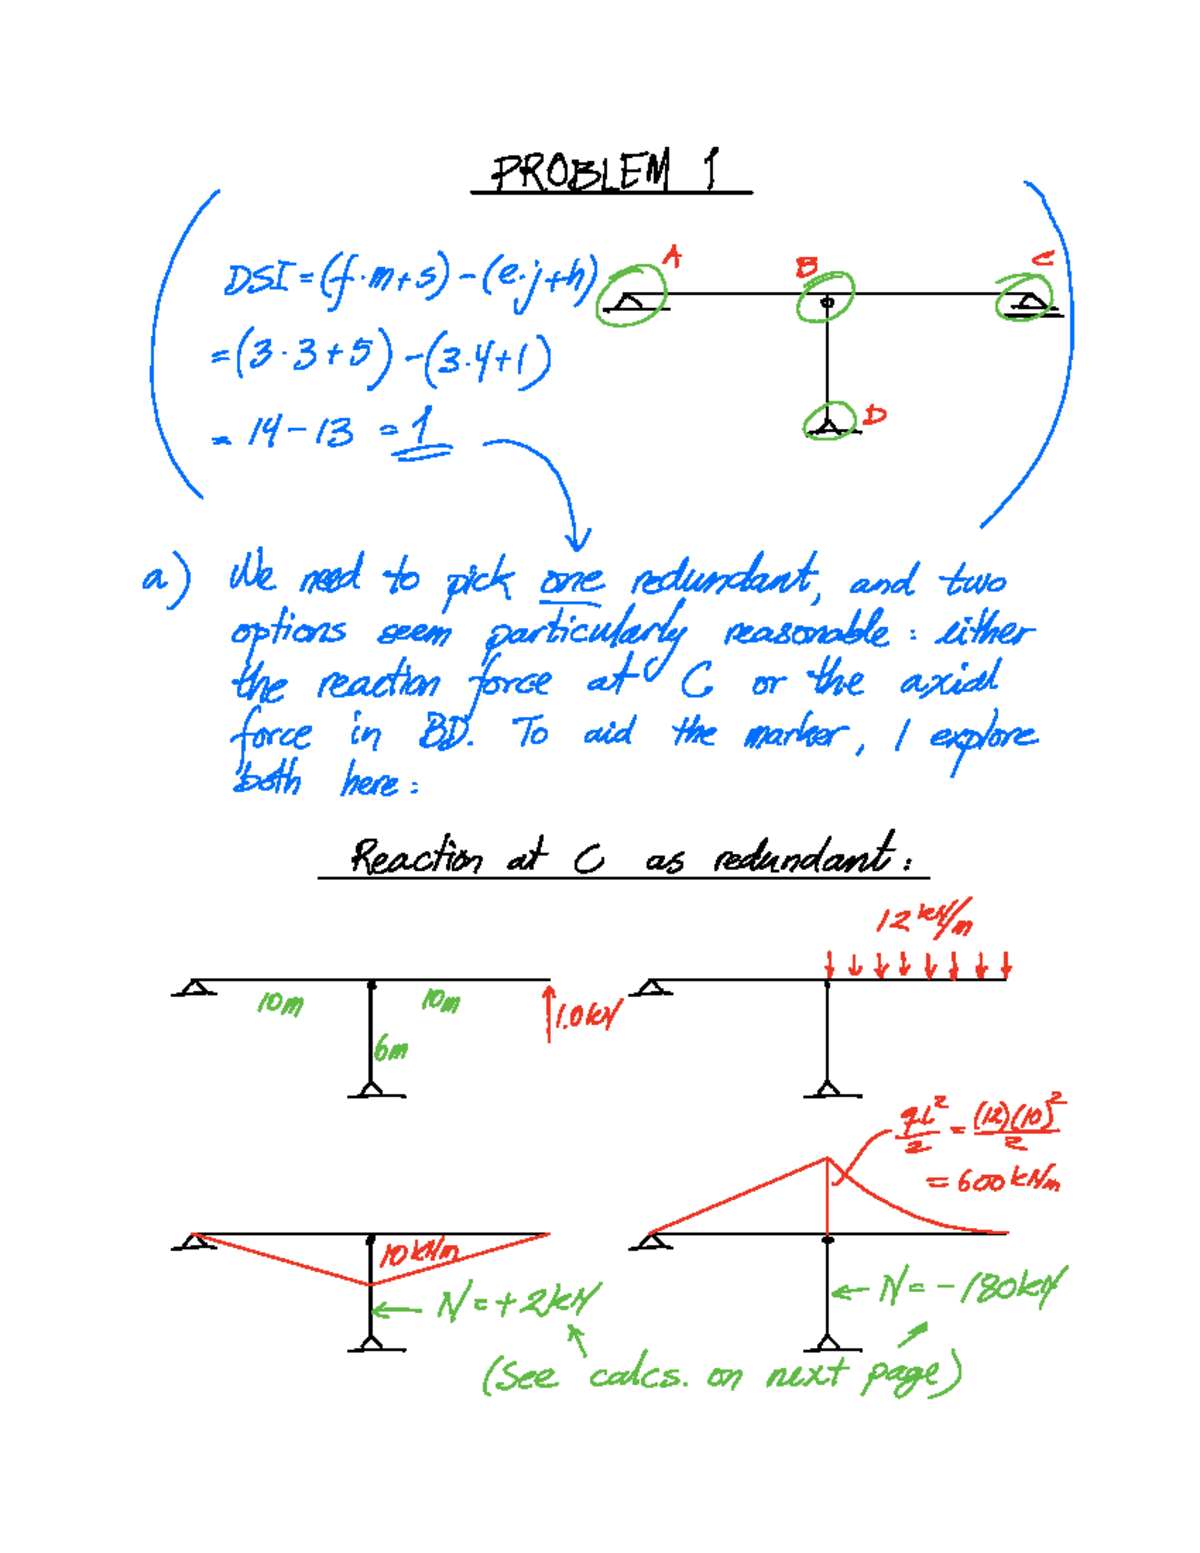 PROBLEM 1
DSI = (f·m+s) - (e·j+h)
= (3·3+5) - (3·4+1)
= 14 - 13 = 1
A
B
C
D
a) We need to pick one redundant, and two
options seem particularly reasonable: either
the reaction force at C or the axial
force in BD. To aid the marker, I explore
both here:
Reaction at C as redundant:
12 kN/m
10m
10m
1.0kN
6m
qL²/2 = (12)(10)²/2
= 600 kNm
10 kNm
N = +2kN
N = -180kN
(see calcs. on next page)